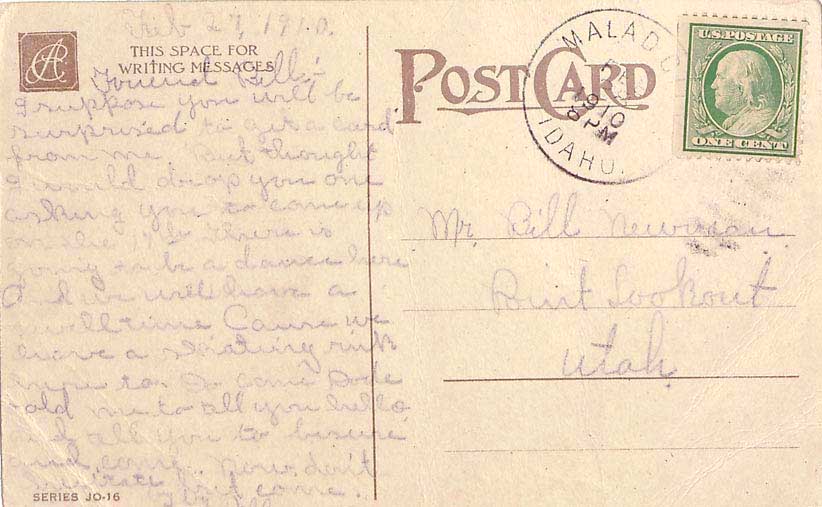 Feb 27, 1910.
THIS SPACE FOR
WRITING MESSAGES
Friend Bill:-
I suppose you will be
surprised to get a card
from me. But thought
I would drop you one
asking you to come up
on the 17th There is
going to be a dance here
And we will have a
swell time Cause we
have a skating rink
here to. So come
told me to tell you hello
and tell you to be sure
and come. Now don't
but come.
SERIES JO-16
POST CARD
MALAD CITY
FEB
1910
8 PM
IDAHO.
U.S. POSTAGE
ONE CENT
Mr. Bill Newman
Point Lookout
Utah